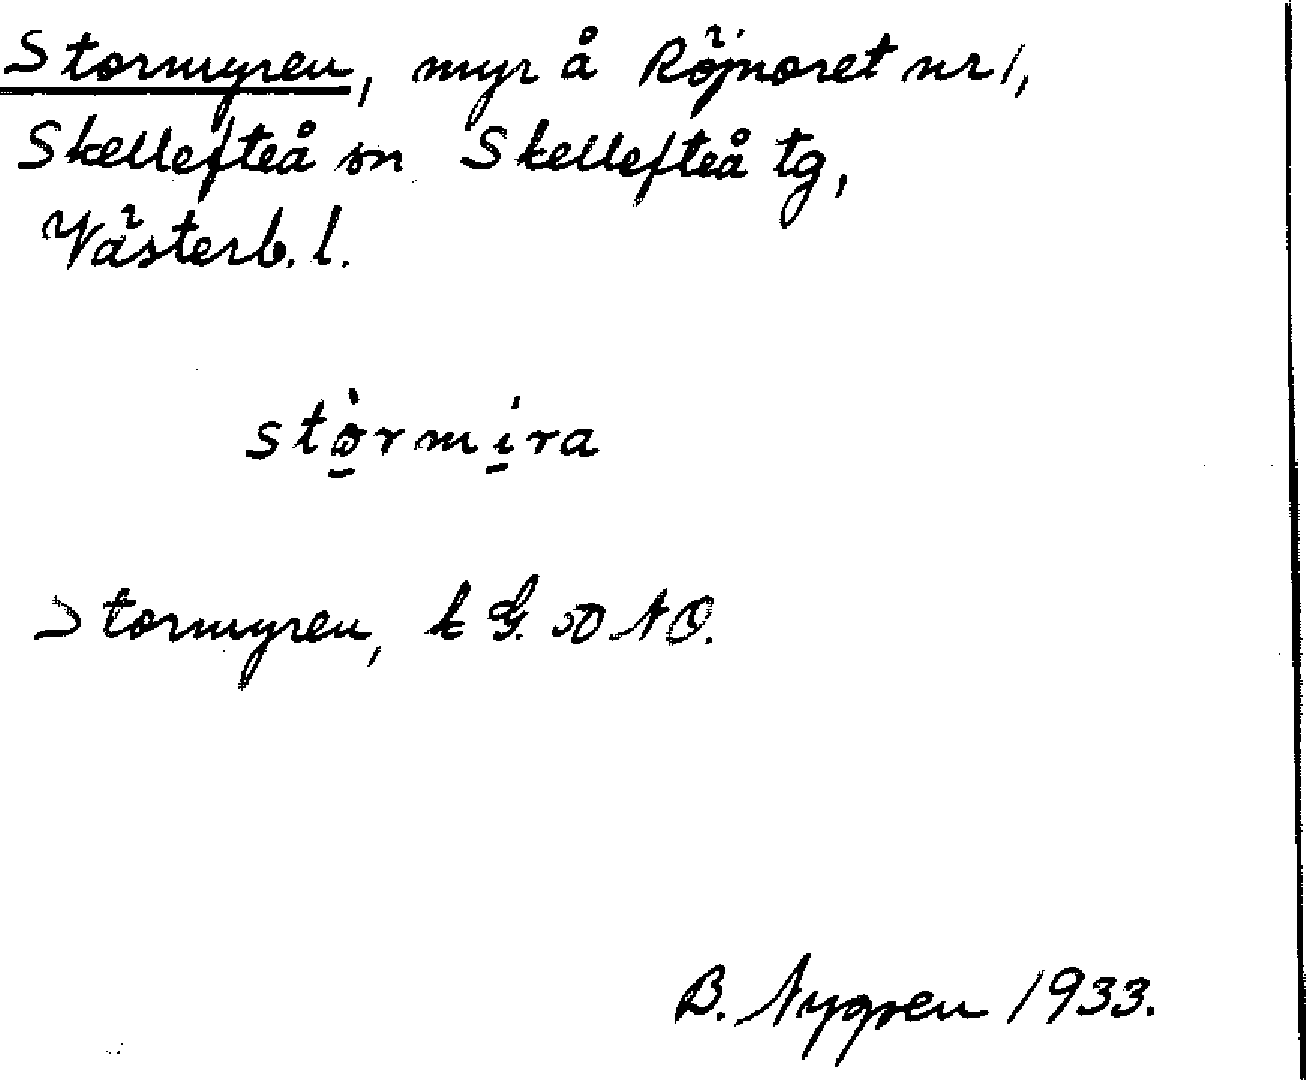 Stormyren, myr å Röjnoret nr 1,
Skellefteå sn Skellefteå tg,
Västerb. l.
stòrmíra
Stormyren, k G. 50 NO.
B. Nygren 1933.